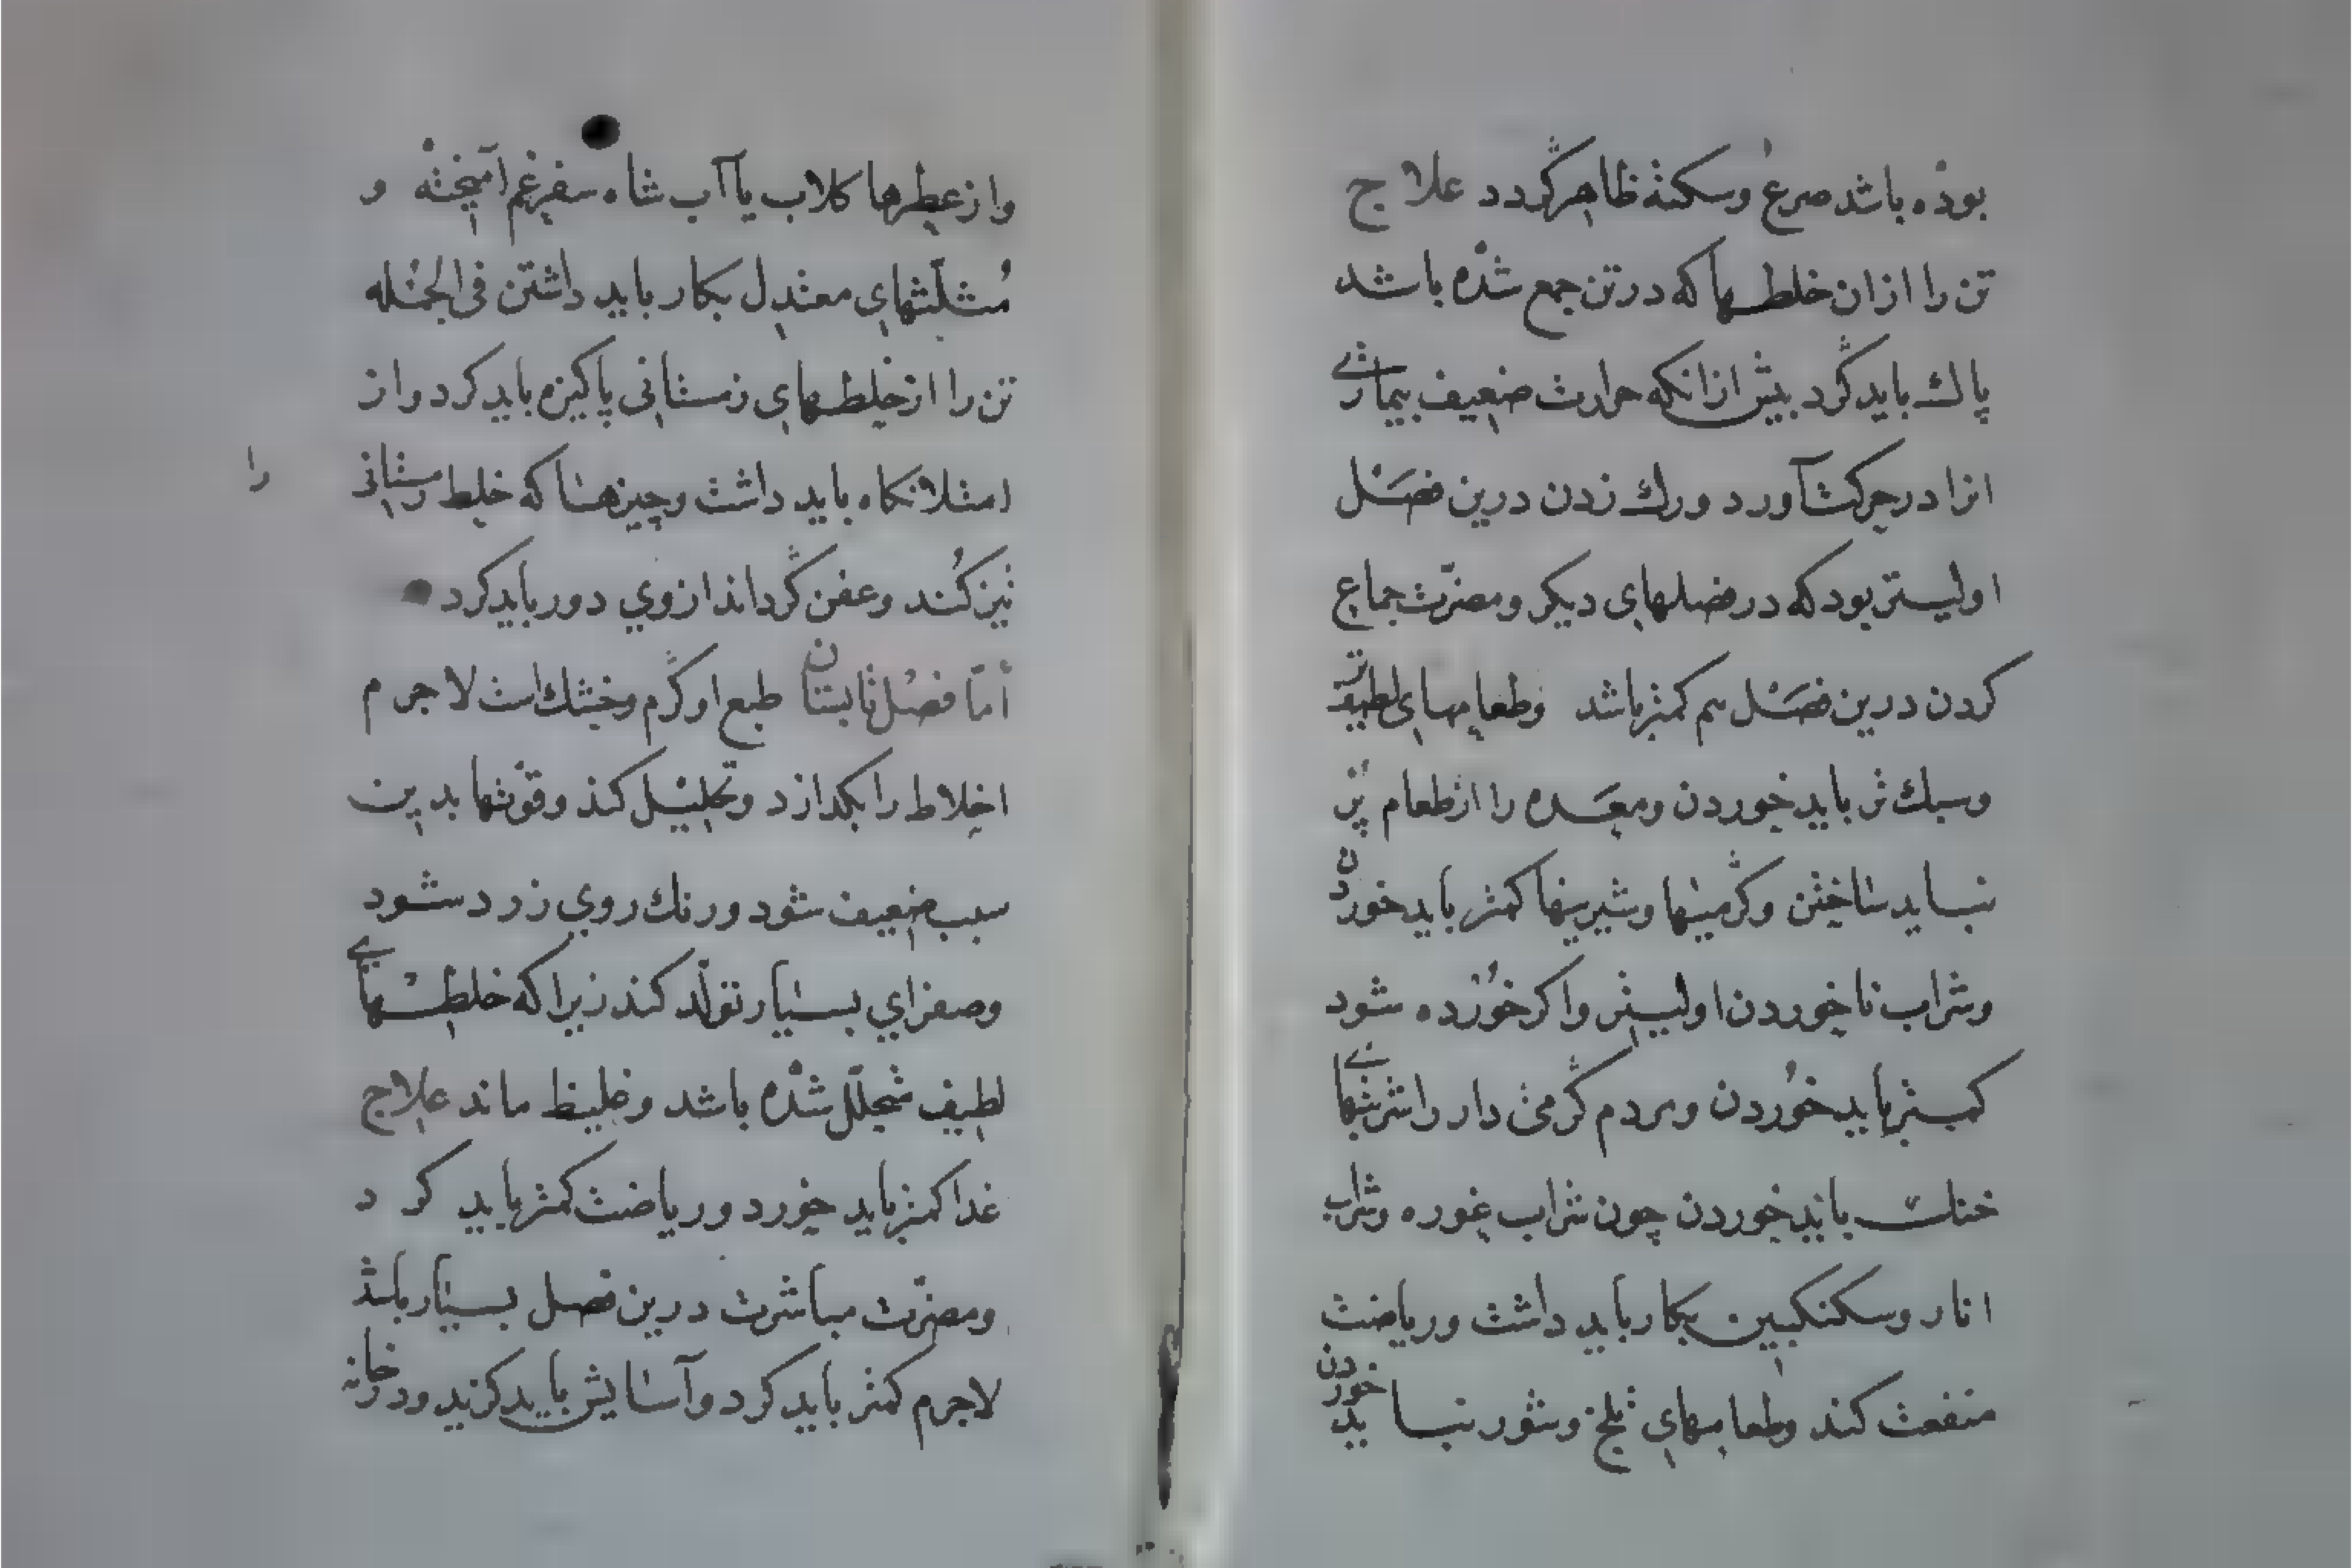 بوذه باشد صرع وسکته ظاهر گردد علاج
تن را ازان خلطـها که درتن جمع شذه باشد
پاك باید گرد بیش ازانکه حرارت ضعیف بیمارئے
انرا درحرکت آورد ورك زدن درین فصل
اولیستر بود که در فصلهای دیکر ومضرّت جماع
کردن درین فصل هم کمتر باشد وطعامهای لطیفتر
وسبك تر باید خوردن ومعده را ازطعام پُر
نبـاید ساختن وگرمیها وشیرینها کمتر باید خوردن
وشراب ناخوردن اولیستر واکر خوُرده شود
کمـتر باید خوُردن ومردم گرمی دار را شربتهائے
خنك باید خوردن چون شراب غوره وشراب
انار وسکنکبین بکار باید داشت وریاضت
منفعت کند وطعامهای تلخ وشور نبـاید خوردن
واز عطرها کلاب یا آب شاه سفرغم آمیخته و
مُثلّثهای معتدل بکار باید داشتن فی الجُمله
تن را از خلطـهای زمستانی پاکیزه باید کرد واز
امتلا نکاه باید داشت وچیزهـا که خلط رستانی را
تیز کُند وعفن گرداند ازوي دور باید کرد
أمّا فصل تابستان طبع او گرم وخشك است لاجرم
اخلاط را بکدازد وتحلیل کند وقوّتها بدین
سبب ضعیف شود ورنك روي زرد شود
وصفراي بسیار تولّد کند زیرا که خلطـهاے
لطیف تحلّل شذه باشد وغلیظ ماند علاج
غدا کمتر باید خورد وریاضت کمتر باید کرد
ومضرّت مباشرت درین فصل بسیار باشد
لاجرم کمتر باید کرد وآسایش باید کزید ودرخانه